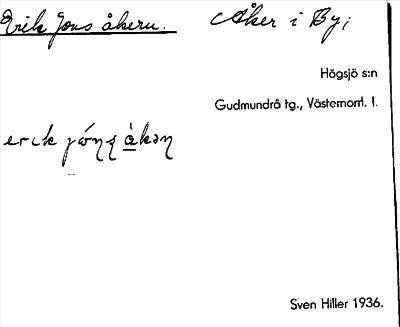 Erik Jons åkern. Åker i By;
Högsjö s:n
Gudmundrå tg., Västernorrl. l.
Sven Hiller 1936.